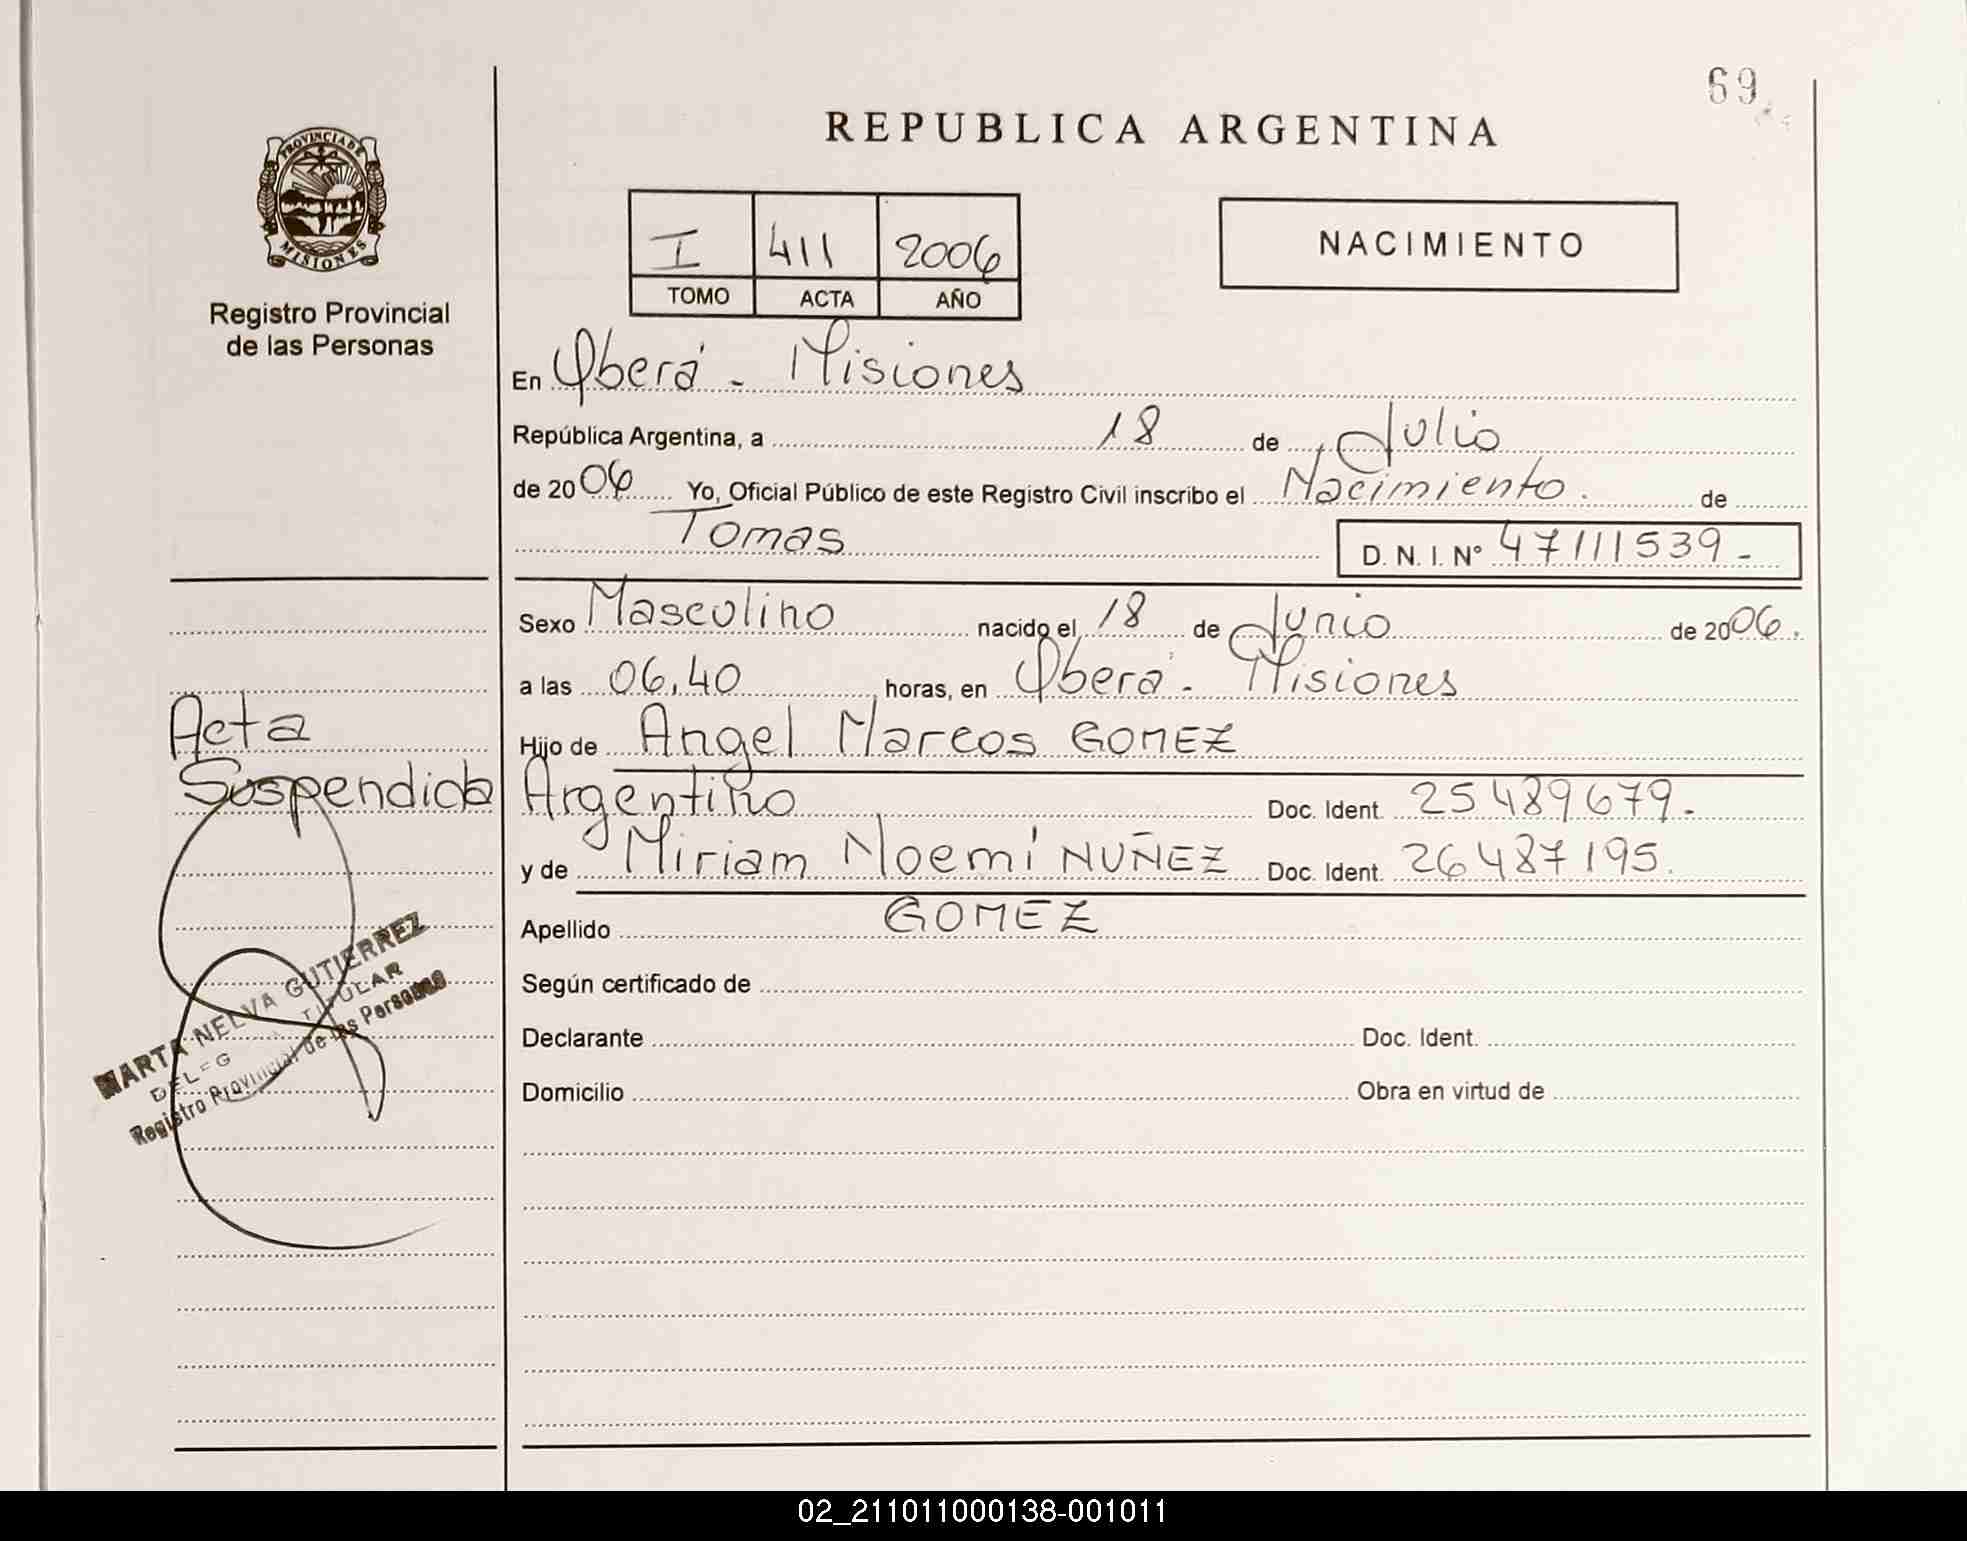 69
PROVINCIA DE
MISIONES
Registro Provincial
de las Personas
REPUBLICA ARGENTINA
I 411 2006
TOMO ACTA AÑO
NACIMIENTO
En Oberá - Misiones
República Argentina, a 18 de Julio
de 2006 Yo, Oficial Público de este Registro Civil inscribo el Nacimiento. de
Tomas D. N. I. N° 47111539-
Sexo Masculino nacido el 18 de Junio de 2006.
a las 06,40 horas, en Oberá - Misiones
Hijo de Angel Marcos GOMEZ
Argentino Doc. Ident. 25489679.
y de Miriam Noemí NUÑEZ Doc. Ident. 26487195.
Apellido GOMEZ
Según certificado de
Declarante Doc. Ident.
Domicilio Obra en virtud de
Acta
Suspendida
MARTA NELVA GUTIERREZ
TITULAR
Registro Provincial de las Personas
02_211011000138-001011